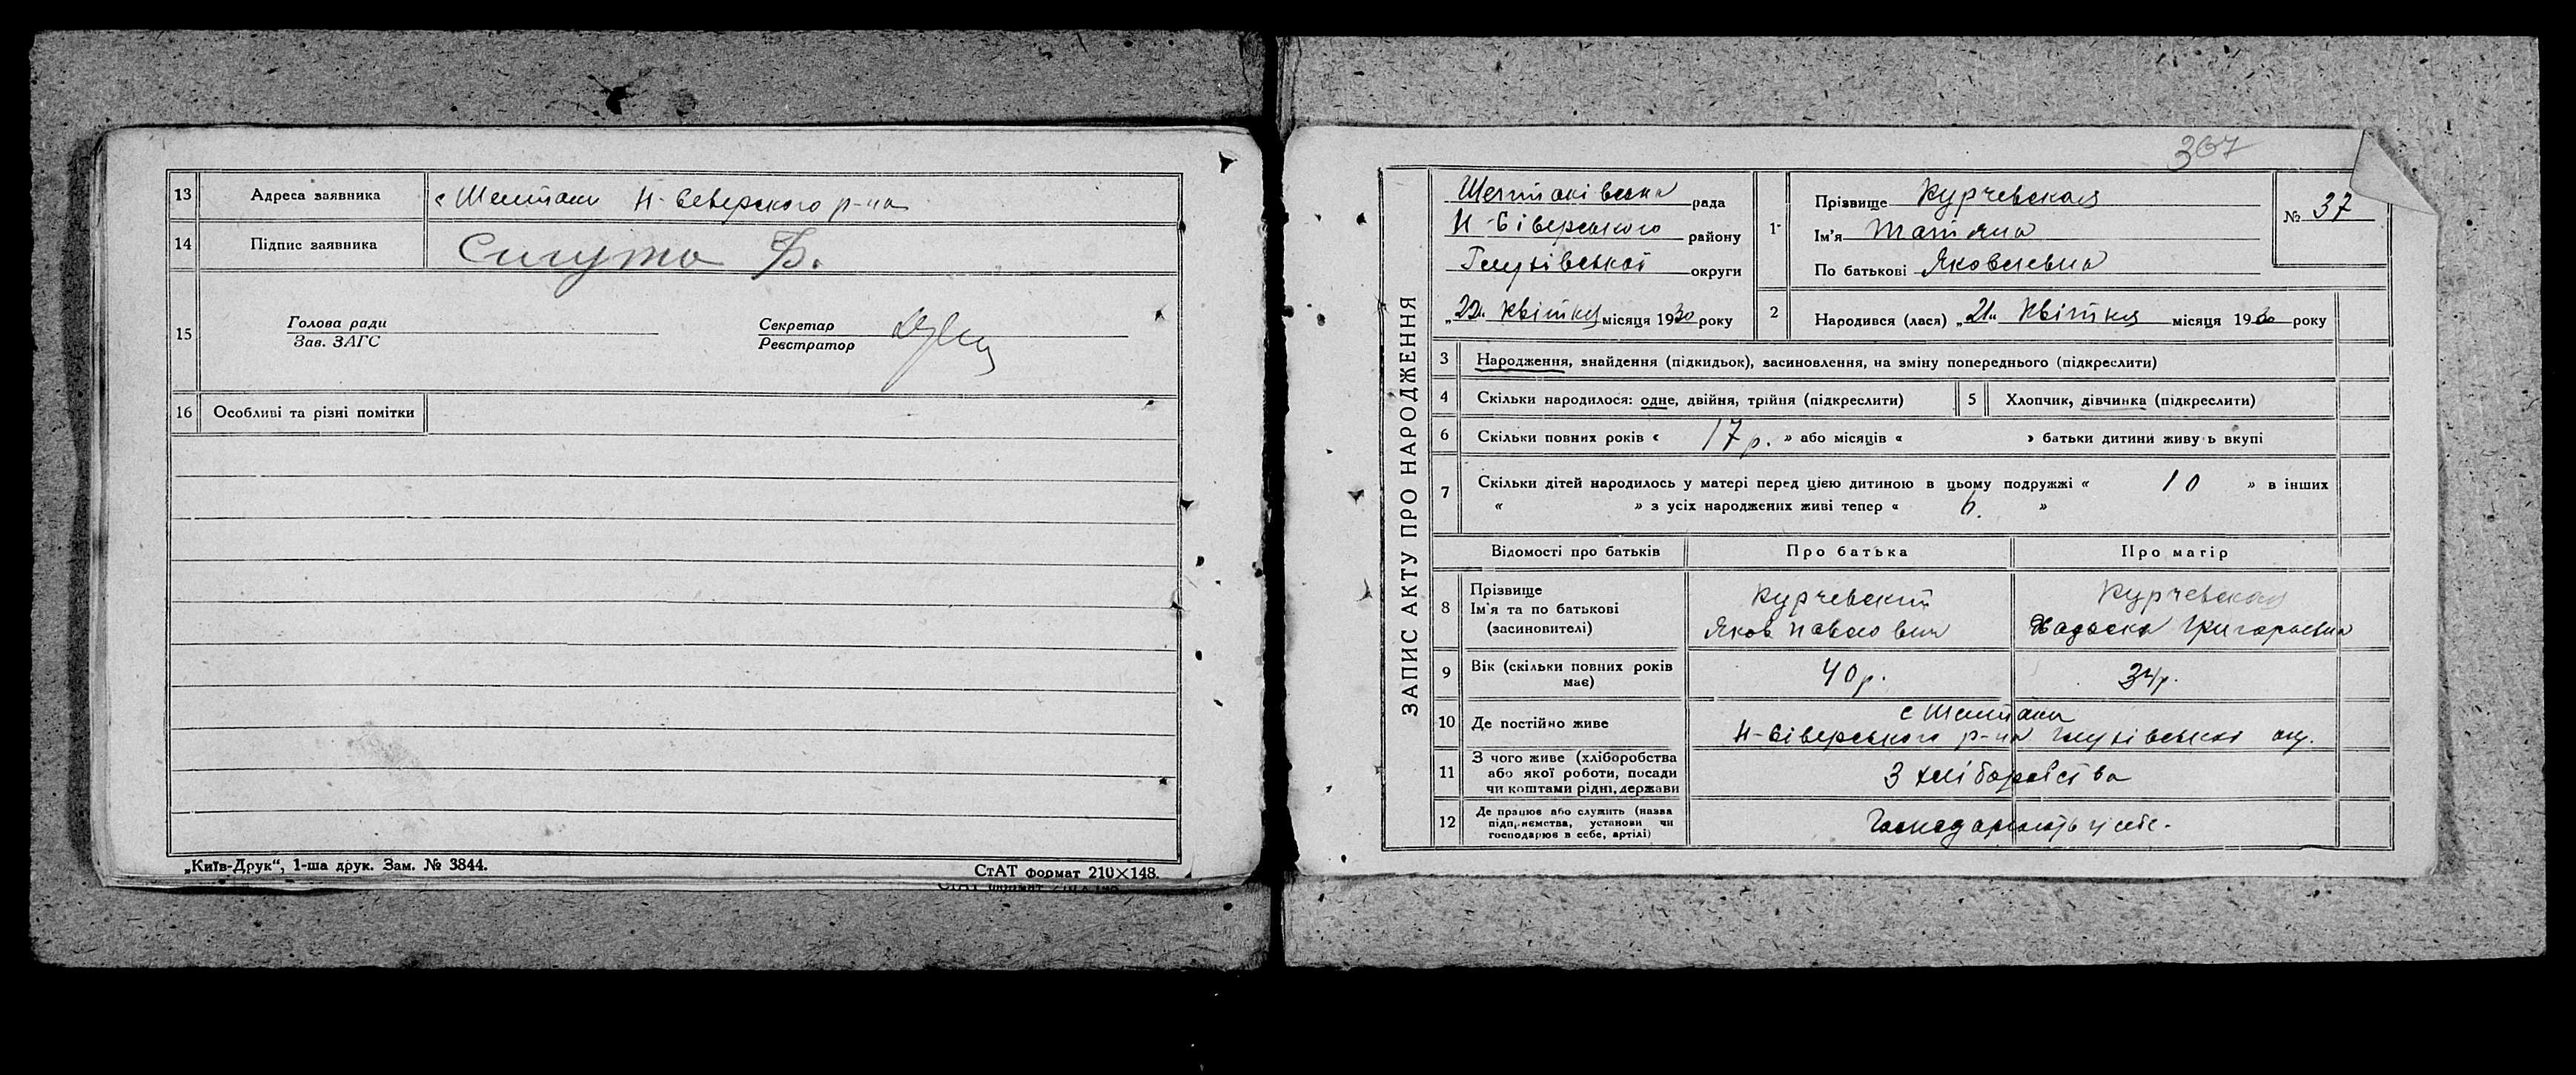 13 Адреса заявника с Шептаки Н-Северского р-на
14 Підпис заявника Сигута Ф.
15 Голова ради
Зав. ЗАГС
Секретар
Реєстратор
16 Особливі та різні помітки
„Київ-Друк“, 1-ша друк. Зам. № 3844.
СтАТ формат 210×148.
367
ЗАПИС АКТУ ПРО НАРОДЖЕННЯ
Шептаківська рада
Н-Сіверського району
Глухівської округи
„22„ Квітня місяця 1930 року
1 Прізвище Курчевская
Ім'я Татяна
По батькові Яковлевна
№ 37
2 Народився (лася) „21„ Квітня місяця 1930 року
3 Народження, знайдення (підкидьок), засиновлення, на зміну попереднього (підкреслити)
4 Скільки народилося: одне, двійня, трійня (підкреслити) 5 Хлопчик, дівчинка (підкреслити)
6 Скільки повних років « 17 р. » або місяців « » батьки дитини живуть вкупі
7 Скільки дітей народилось у матері перед цією дитиною в цьому подружжі « 10 » в інших
« » з усіх народжених живі тепер « 6. »
Відомості про батьків Про батька Про матір
8 Прізвище
Ім'я та по батькові
(засиновителі)
Курчевский
Яков Павлович
Курчевская
Григорьевна
9 Вік (скільки повних років
має)
40 р. 34 р.
10 Де постійно живе
с Шептаки
Н-Сіверського р-на Глухівської окр.
11 З чого живе (хліборобства
або якої роботи, посади
чи коштами рідні, держави
З хліборобства
12 Де працює або служить (назва
підприємства, установи чи
господарює в себе, артілі)
Господарюють у себе.